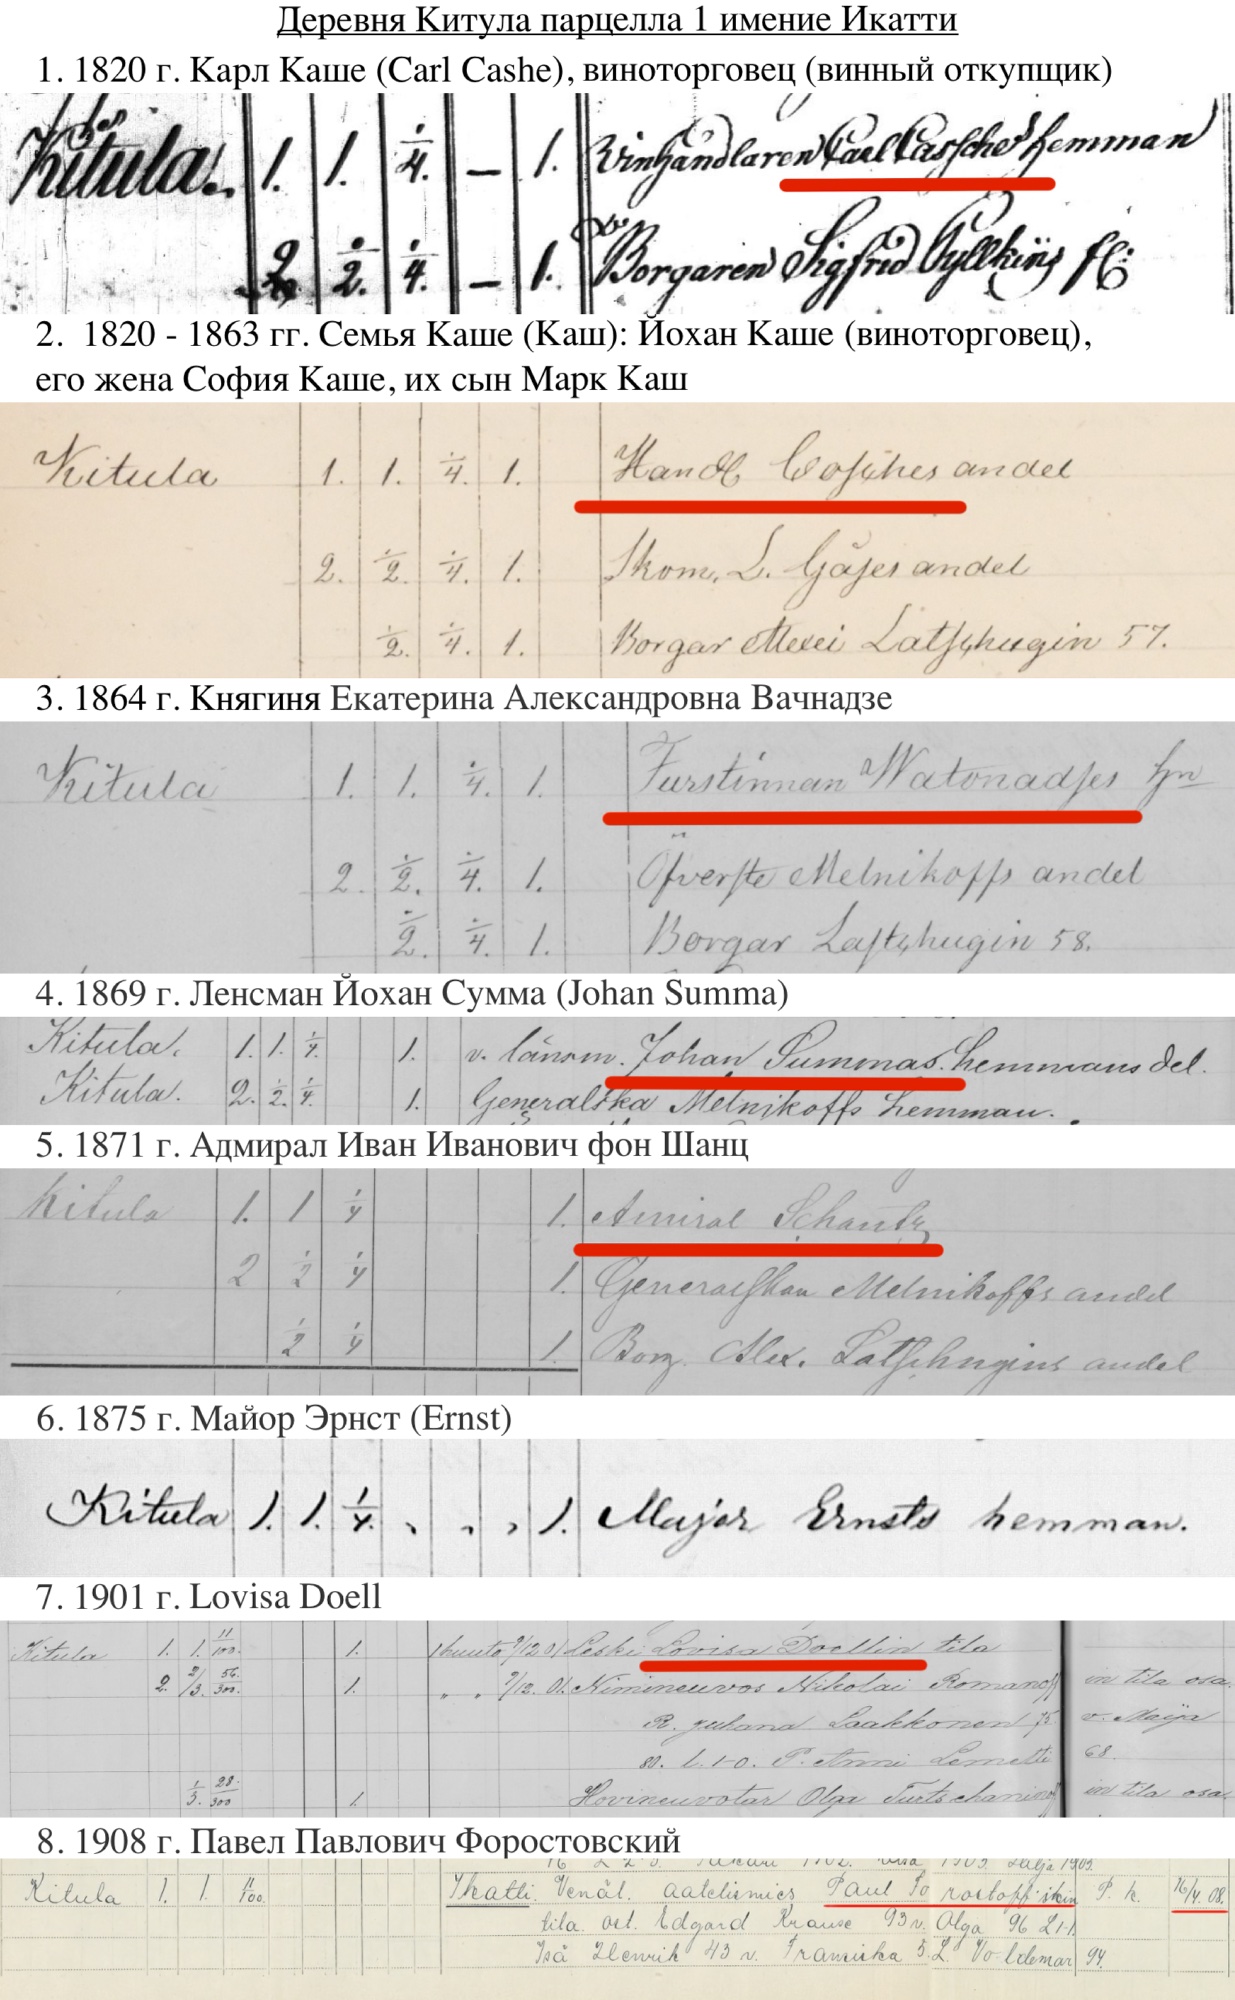 Деревня Китула парцелла 1 имение Икатти
1. 1820 г. Карл Каше (Carl Cashe), виноторговец (винный откупщик)
Kitula. 1. 1. 1/4. — 1. Vinhandlaren Carl Casches hemman
2. 1/2. 1/4. — 1. Borgaren Sigfrid
2. 1820 - 1863 гг. Семья Каше (Каш): Йохан Каше (виноторговец),
его жена София Каше, их сын Марк Каш
Kitula 1. 1. 1/4. 1. Handl. Cosches andel
2. 1/2. 1/4. 1. Skom. L. andel
1/2. 1/4. 1. Borgar Alexei Latschugin 57.
3. 1864 г. Княгиня Екатерина Александровна Вачнадзе
Kitula 1. 1. 1/4. 1. Furstinnan Watonadses
2. 1/2. 1/4. 1. Öfverste Melnikoffs andel
1/2. 1/4. 1. Borgar Latschugin 58.
4. 1869 г. Ленсман Йохан Сумма (Johan Summa)
Kitula. 1. 1. 1/4. 1. v. länsm. Johan Summas hemmans del.
Kitula. 2. 1/2. 1/4. 1. Generalska Melnikoffs hemman.
5. 1871 г. Адмирал Иван Иванович фон Шанц
Kitula 1. 1 1/4 1. Amiral Schantz
2 1/2 1/4 1. Generalskan Melnikoffs andel
1/2 1/4 1. Borg. Alex. Latschugins andel
6. 1875 г. Майор Эрнст (Ernst)
Kitula 1. 1. 1/4. „ „ „ 1. Major Ernsts hemman.
7. 1901 г. Lovisa Doell
Kitula 1. 1. 11/100. 1. 9/12 01 Leski Lovisa Doellin tila
2. 2/3. 56/300. 1. „ „ 9/12. 01. Kimineuvos Nikolai Romanoff in tila osa.
R. Juhana Laakkonen 75 v. Maija
80. L. 1-0. P. Anni Lemetti 68.
1/3. 28/300 1. Hovineuvotar Olga Turtschaninoff in tila osa.
8. 1908 г. Павел Павлович Форостовский
Kitula 1. 1. 11/100. Ikatti. Venäl. aatelismies Paul Forostoffskin P. k. 16/4. 08.
tila. ost. Edgard Krause 93 v. Olga 96 L 1-1
Isä Henrik 43 v. Franciska 5. L. Voldemar 94.